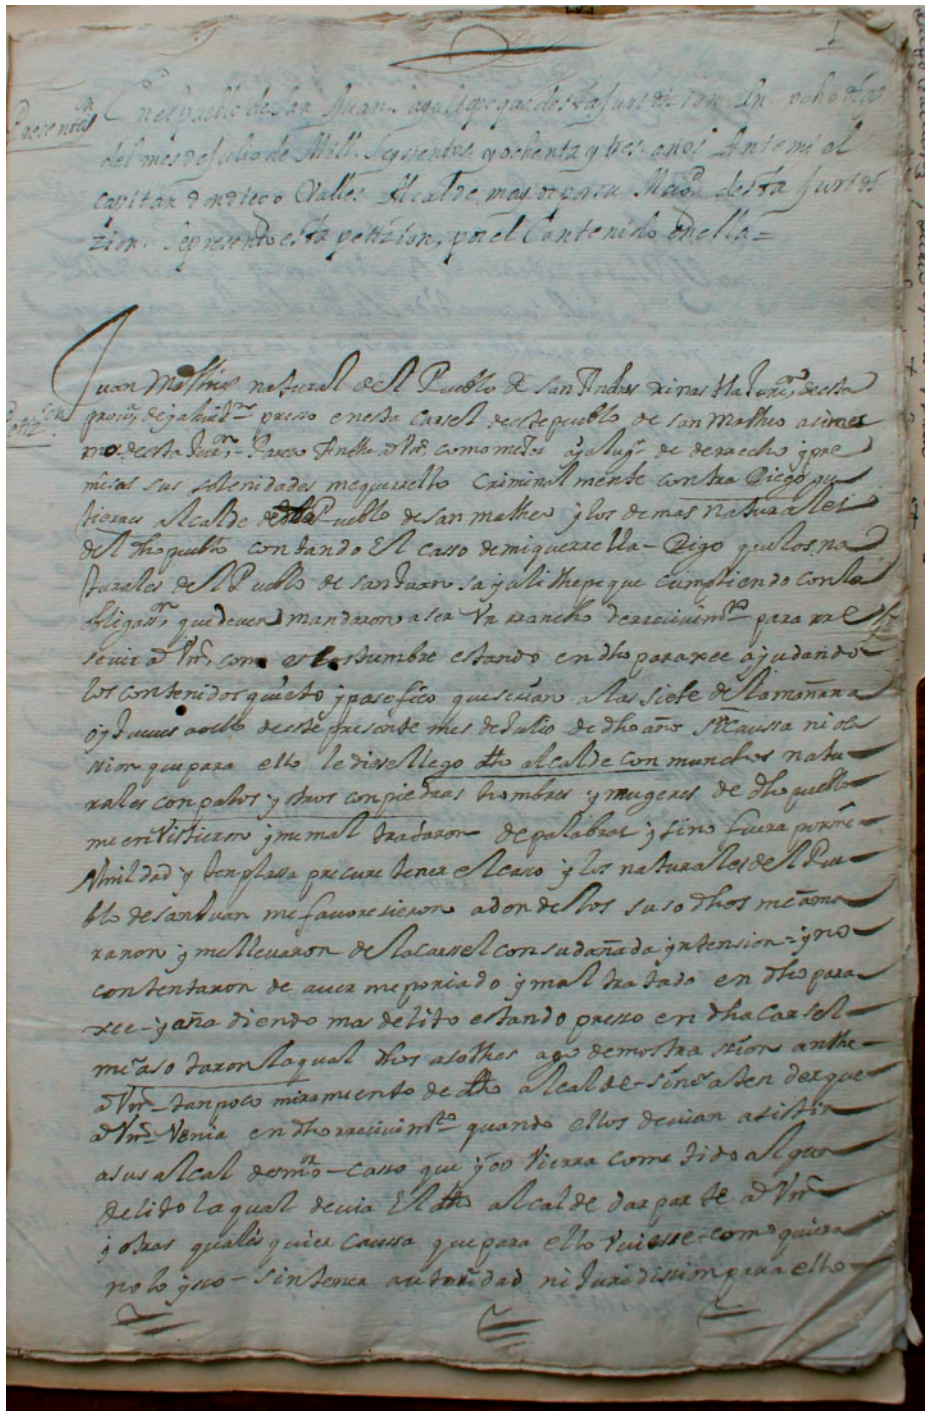 1
Presentaon
En el pueblo de san Juan sayultepeque desta jurisdision En ocho dias
del mes de Julio de Mill. Seysientos y ochenta y tres años Ante mi el
Capitan don diego Valles Alcalde mayor por su Magd desta Jurisdi
zion. Sepresento esta petizion, por el Contenido En ella =
Petizion
Juan Mathias natural del Pueblo de san Andres xinastla Juron desta
presso en esta carsel de este pueblo de san Matheo asimes
mo desta Juron Paresco Ante Vm como mejor aya lugr de derecho y pre
misas sus solenidades me querello Criminalmente contra Diego gu
tierres alcalde del Pueblo de san matheo y los demas naturales
del dho pueblo contando El casso de mi querrella - Digo que los na
turales del Pueblo de san Juan sayultthepeque cumpliendo con la
obligason que deven mandaron aser Vn rrancho de rresivimto para rre
sevir a Vm, como es costumbre estando en dho paraxee ayudando
los contenidos quieto y pasefico que serian a las siete de la mañana
oy Jueves ocho deeste presente mes de Julio de dho año sin caussa ni oca
sion que para ello le diese llego dho alcalde con munchos natu
rales con palos y otros con piedras hombres y mugeres de dho pueblo
me envistieron y me mal trataron de palabras y sino fuera por mi
vmildad y templassa precure tener el caso y los naturales del Pue
blo de san Juan me favoresieron adonde los suso dhos me ama
raron y me llevaron de la carsel con su dañada yntension - y no
contentaron de aver me poriado y mal tratado en dho para
xee - y aña diendo mas delito estando presso en dha carsel
me asotaron la qual dhos asothes ago demostrasion anthe
a Vm - tan poco miramiento de dho alcalde - sin atender que
a Vm Venia en dho rresivimto quando ellos devian asistir
a sus alcaldes mor - casso que yo vvierra cometido algun
delito la qual devia El dho alcalde dar parte a Vm
y otras quales quier caussa que para ello vviesse - como quiera
no lo yso - sin tener autoridad ni Juridission para ello